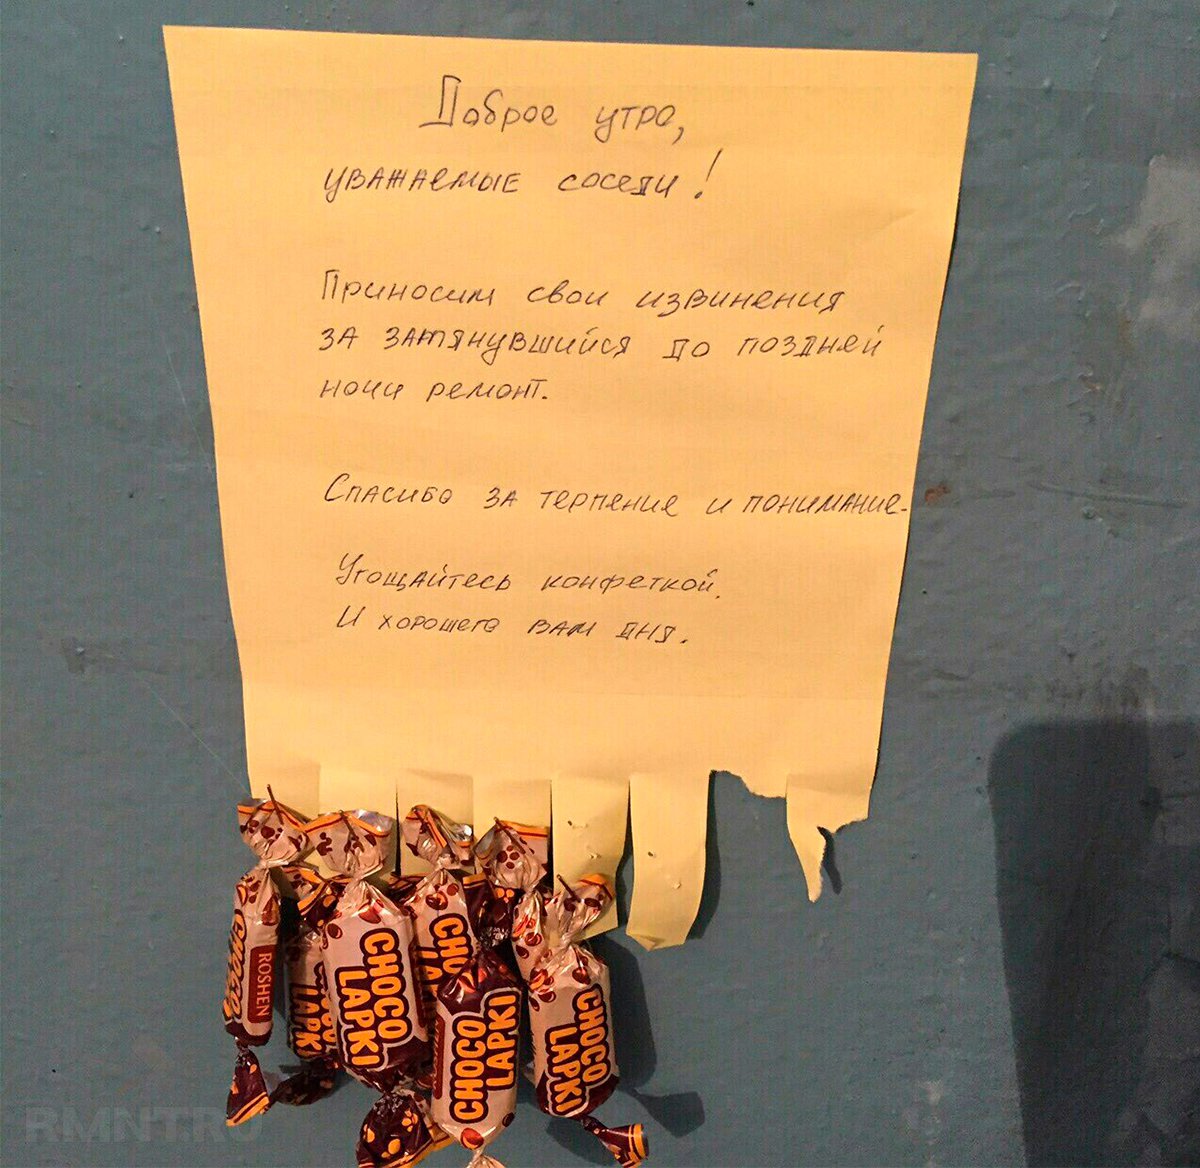 Доброе утро,
уважаемые соседи!
Приносим свои извинения
за затянувшийся до поздней
ночи ремонт.
Спасибо за терпение и понимание.
Угощайтесь конфеткой.
И хорошего вам дня.
ROSHEN
CHOCO
LAPKI
CHOCO
LAPKI
CHOCO
LAPKI
CHOCO
LAPKI
RMNT.RU